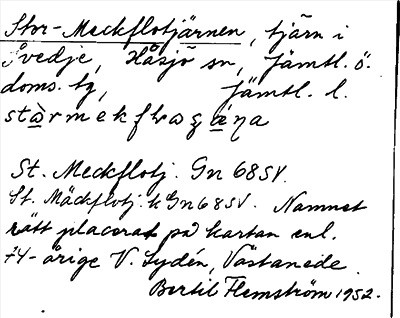 Stor-Meckflotjärnen, tjärn i
Svedje, Håsjö sn, Jämtl. ö.
doms. tg, Jämtl. l.
St. Meckflotj. Gn 68 SV.
St. Mäckflotj. k Gn 68 SV. Namnet
rätt placerat på kartan enl.
74-årige V. Lydén, Västanede.
Bertil Flemström 1952.